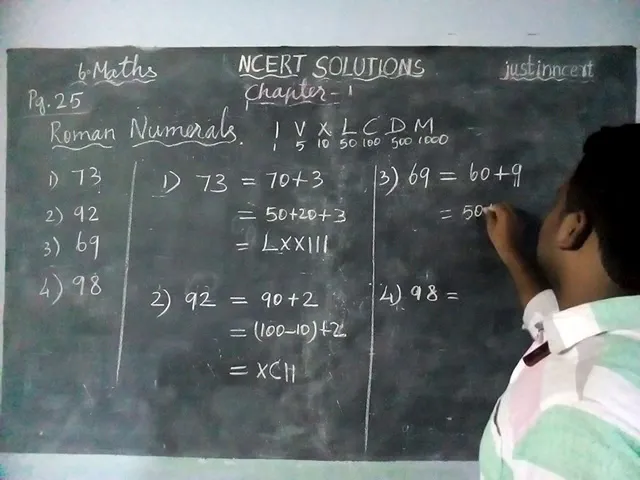 6 Maths
NCERT SOLUTIONS
justinncert
Pg. 25
Chapter - 1
Roman Numerals.
I V X L C D M
1 5 10 50 100 500 1000
1) 73
2) 92
3) 69
4) 98
1) 73 = 70+3
= 50+20+3
= LXXIII
2) 92 = 90+2
= (100-10)+2
= XCII
3) 69 = 60+9
= 50+
4) 98 =